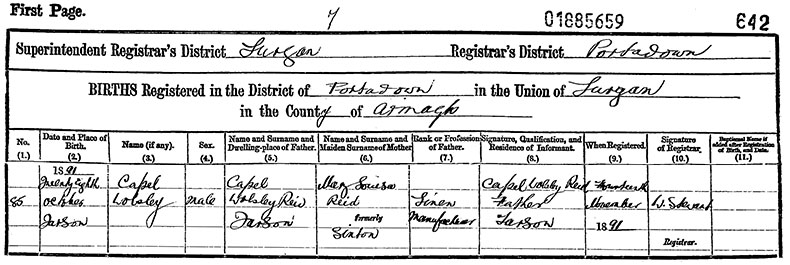 First Page.
7
01885659
642
Superintendent Registrar's District Lurgan Registrar's District Portadown
BIRTHS Registered in the District of Portadown in the Union of Lurgan
in the County of Armagh
No. Date and Place of Birth. Name (if any). Sex. Name and Surname and Dwelling-place of Father. Name and Surname and Maiden Surname of Mother Rank or Profession of Father. Signature, Qualification, and Residence of Informant. When Registered. Signature of Registrar. Baptismal Name if added after Registration of Birth, and Date.
(1.) (2.) (3.) (4.) (5.) (6.) (7.) (8.) (9.) (10.) (11.)
1891
Twenty Eighth Capel Capel Mary Louisa Capel Wolsley Reid Fourteenth
85 October Wolsley male Wolsley Reid Reid Linen Father November
Tarson Tarson formerly Manufacturer Tarson 1891
Sinton Registrar.